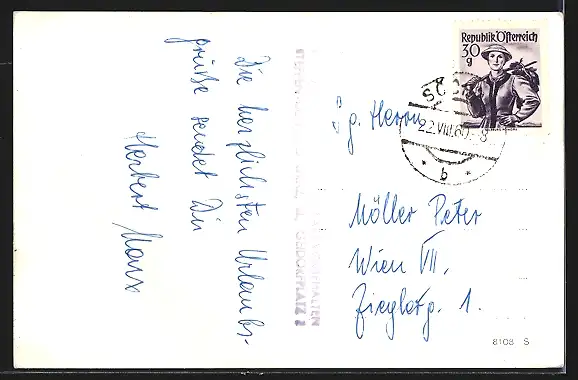 Die herzlichsten Urlaubs-
grüße sendet Dir
Herbert
Republik Österreich
30
g
22.VIII.60.-8
b
g. Herrn
Möller Peter
Wien VII.
Zieglerg. 1.
8108 S